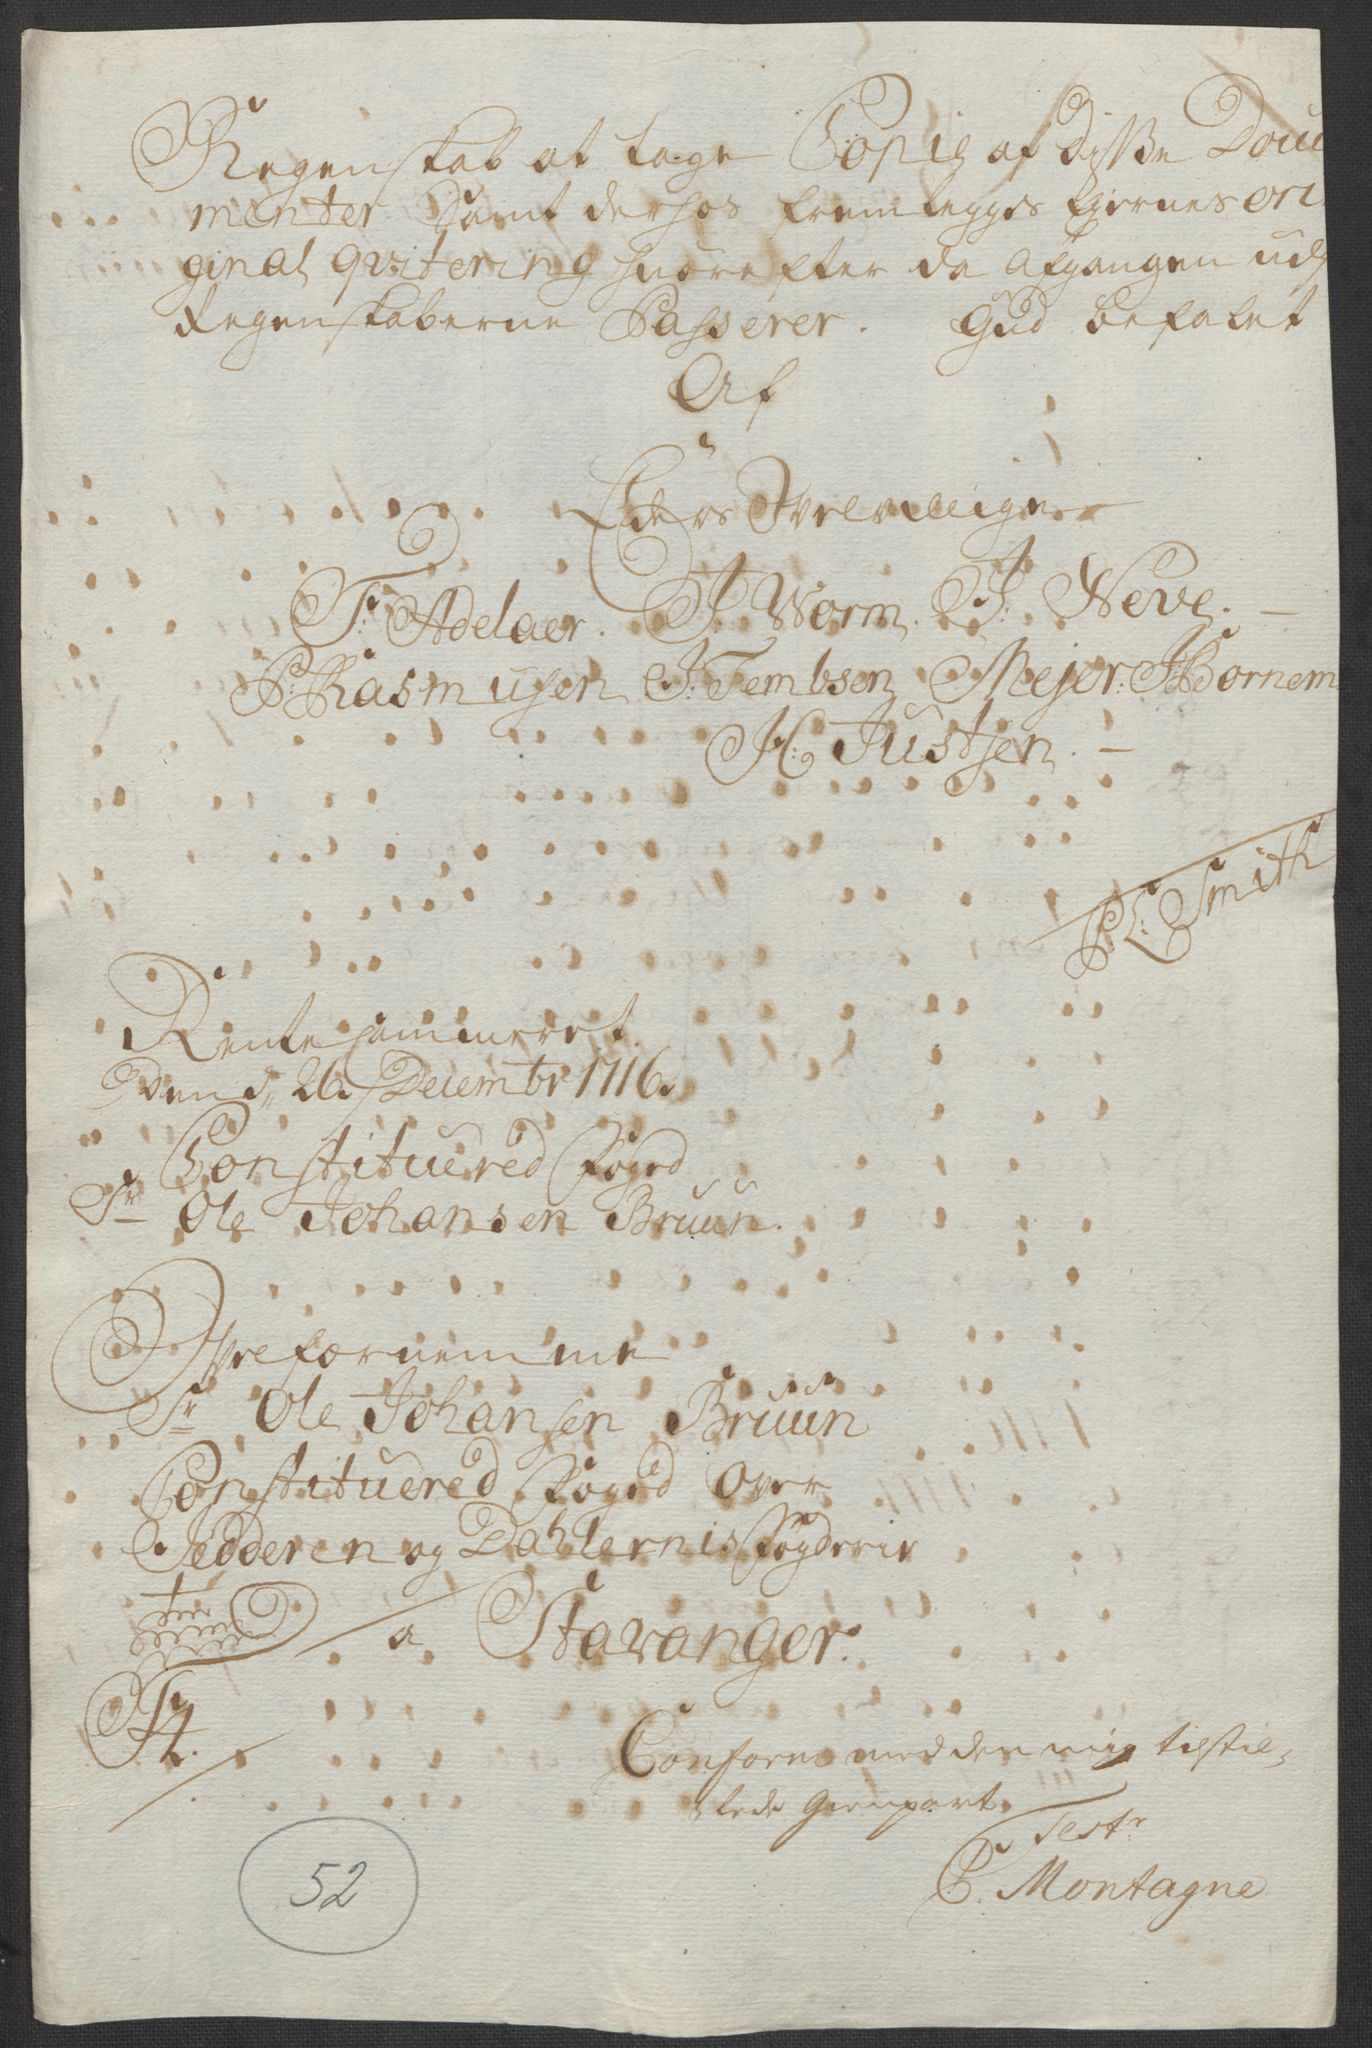 Regenskab at tage Copie af disse Docu
menter Samt derhos fremlegges hgernes ori
ginal qvitering huorefter da afgangen udj
Regenskaberne Passerer. Gud befalet
Af
Eders Tvenvillige
F: Adelaer. J: Worm. J: Neve.
P: Rasmusen J: Tembsen Mejer. J: Bornem
H: Justsen.
P: L: Smith
Rente Cammeret
Den 26 Decembr 1716.
Constituered foged
Sr Ole Johansen Bruun.
Velfornemme
Sr Ole Johansen Bruun
Constituered foged over
Jedderen og Dahlernis fogderie
a Stavanger.
Conform med den mig tilstil-
lede Gienpart
Test:
C. Montagne
52